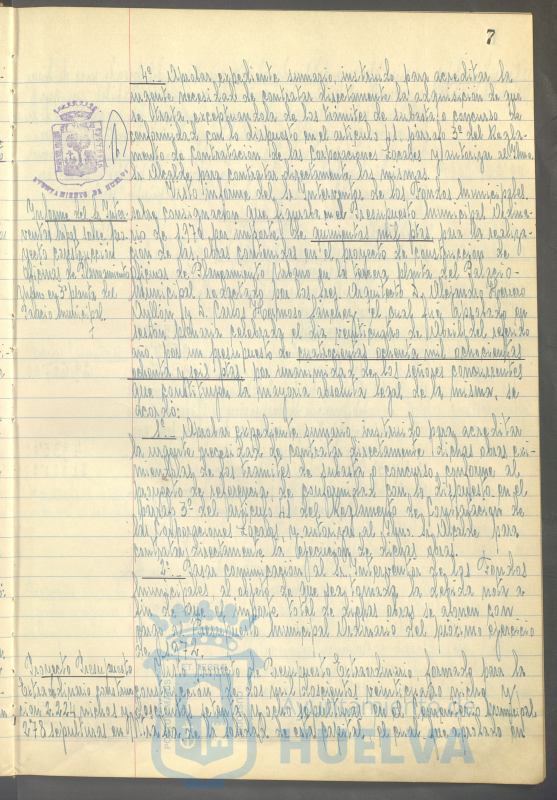 7
4º.- Aprobar expediente sumario, instruido para acreditar la
urgente necesidad de contratar directamente la adquisición de que
se trata, exceptuándola de los trámites de subasta o concurso de
conformidad con lo dispuesto en el artículo 41, párrafo 3º del Regla-
mento de Contratación de las Corporaciones Locales y autorizar al Iltmo.
Sr. Alcalde, para contratar directamente las mismas.
Visto informe del Sr. Interventor de los Fondos Municipales
sobre consignación que figurada en el Presupuesto Municipal Ordina-
rio de 1972 por importe de quinientas mil ptas, para la realiza-
ción de las obras contenidas en el proyecto de construcción de
Oficinas de Planeamiento Urbano en la tercera planta del Palacio
Municipal, redactado por los Sres. Arquitecto D. Alejandro Herrero
Ayllón y D. Carlos Hermoso Sánchez, el cual fue aprobado en
sesión plenaria celebrada el día veinticuatro de Abril del referido
año, por un presupuesto de cuatrocientas ochenta mil ochocientas
ochenta y seis ptas, por unanimidad de los señores concurrentes
que constituyen la mayoría absoluta legal de la misma, se
acordó:
1º.- Aprobar expediente sumario instruido para acreditar
la urgente necesidad de contratar directamente dichas obras exi-
miéndolas de los trámites de subasta o concurso, conforme al
proyecto de referencia, de conformidad con lo dispuesto en el
párrafo 3º del artículo 41 del Reglamento de Contratación de
las Corporaciones Locales y autorizar al Iltmo. Sr. Alcalde para
contratar directamente la ejecución de dichas obras.
2º.- Pasar comunicación al Sr. Interventor de los Fondos
municipales al objeto de que sea tomada la debida nota a
fin de que el importe total de dichas obras se abonen con
cargo al Presupuesto Municipal Ordinario del próximo ejercicio
de
de Presupuesto Extraordinario, formado para la
construcción de dos mil doscientos veinticuatro nichos y
doscientas setenta y ocho sepulturas en el Cementerio Municipal
de la Soledad de esta capital, el cual fue aprobado en
Informe del Sr. Inter-
ventor Mpal. sobre pro-
yecto construcción
oficinas de Planeamiento
Urbano en 3ª planta del
Palacio Municipal.
Proyecto Presupuesto
Extraordinario construc-
ción 2.224 nichos y
278 sepulturas en
AYUNTAMIENTO DE HUELVA
HUELVA